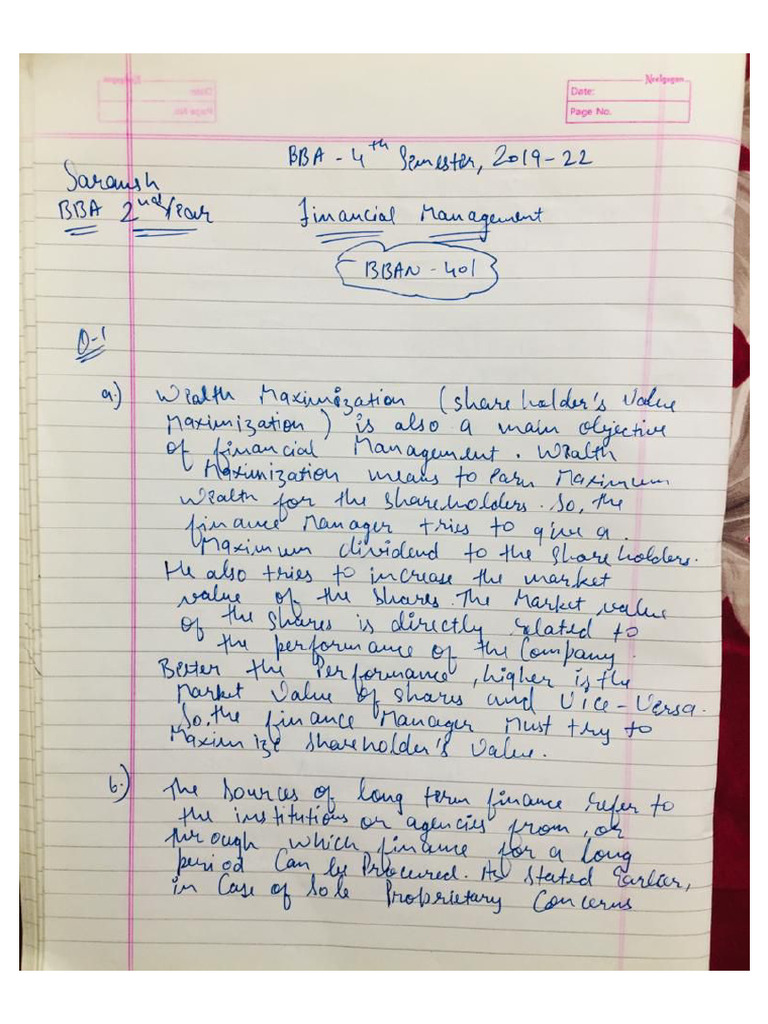 Neelgagan
Date:
Page No.
BBA - 4th Semester, 2019-22
Saransh
BBA 2nd Year
Financial Management
BBAN - 401
Q-1
a.) Wealth Maximization (shareholder's Value
Maximization) is also a main objective
of financial Management. Wealth
Maximization means to earn Maximum
Wealth for the shareholders. So, the
finance Manager tries to give a
Maximum dividend to the shareholders.
He also tries to increase the market
value of the shares. The Market value
of the shares is directly related to
the performance of the Company.
Better the Performance, higher is the
Market Value of shares and Vice-Versa.
So, the finance Manager Must try to
Maximize shareholder's Value.
b.) The Sources of long term finance refer to
the institutions or agencies from, or
through which finance for a long
period Can be Procured. As stated Earlier,
in Case of Sole Proprietary Concerns